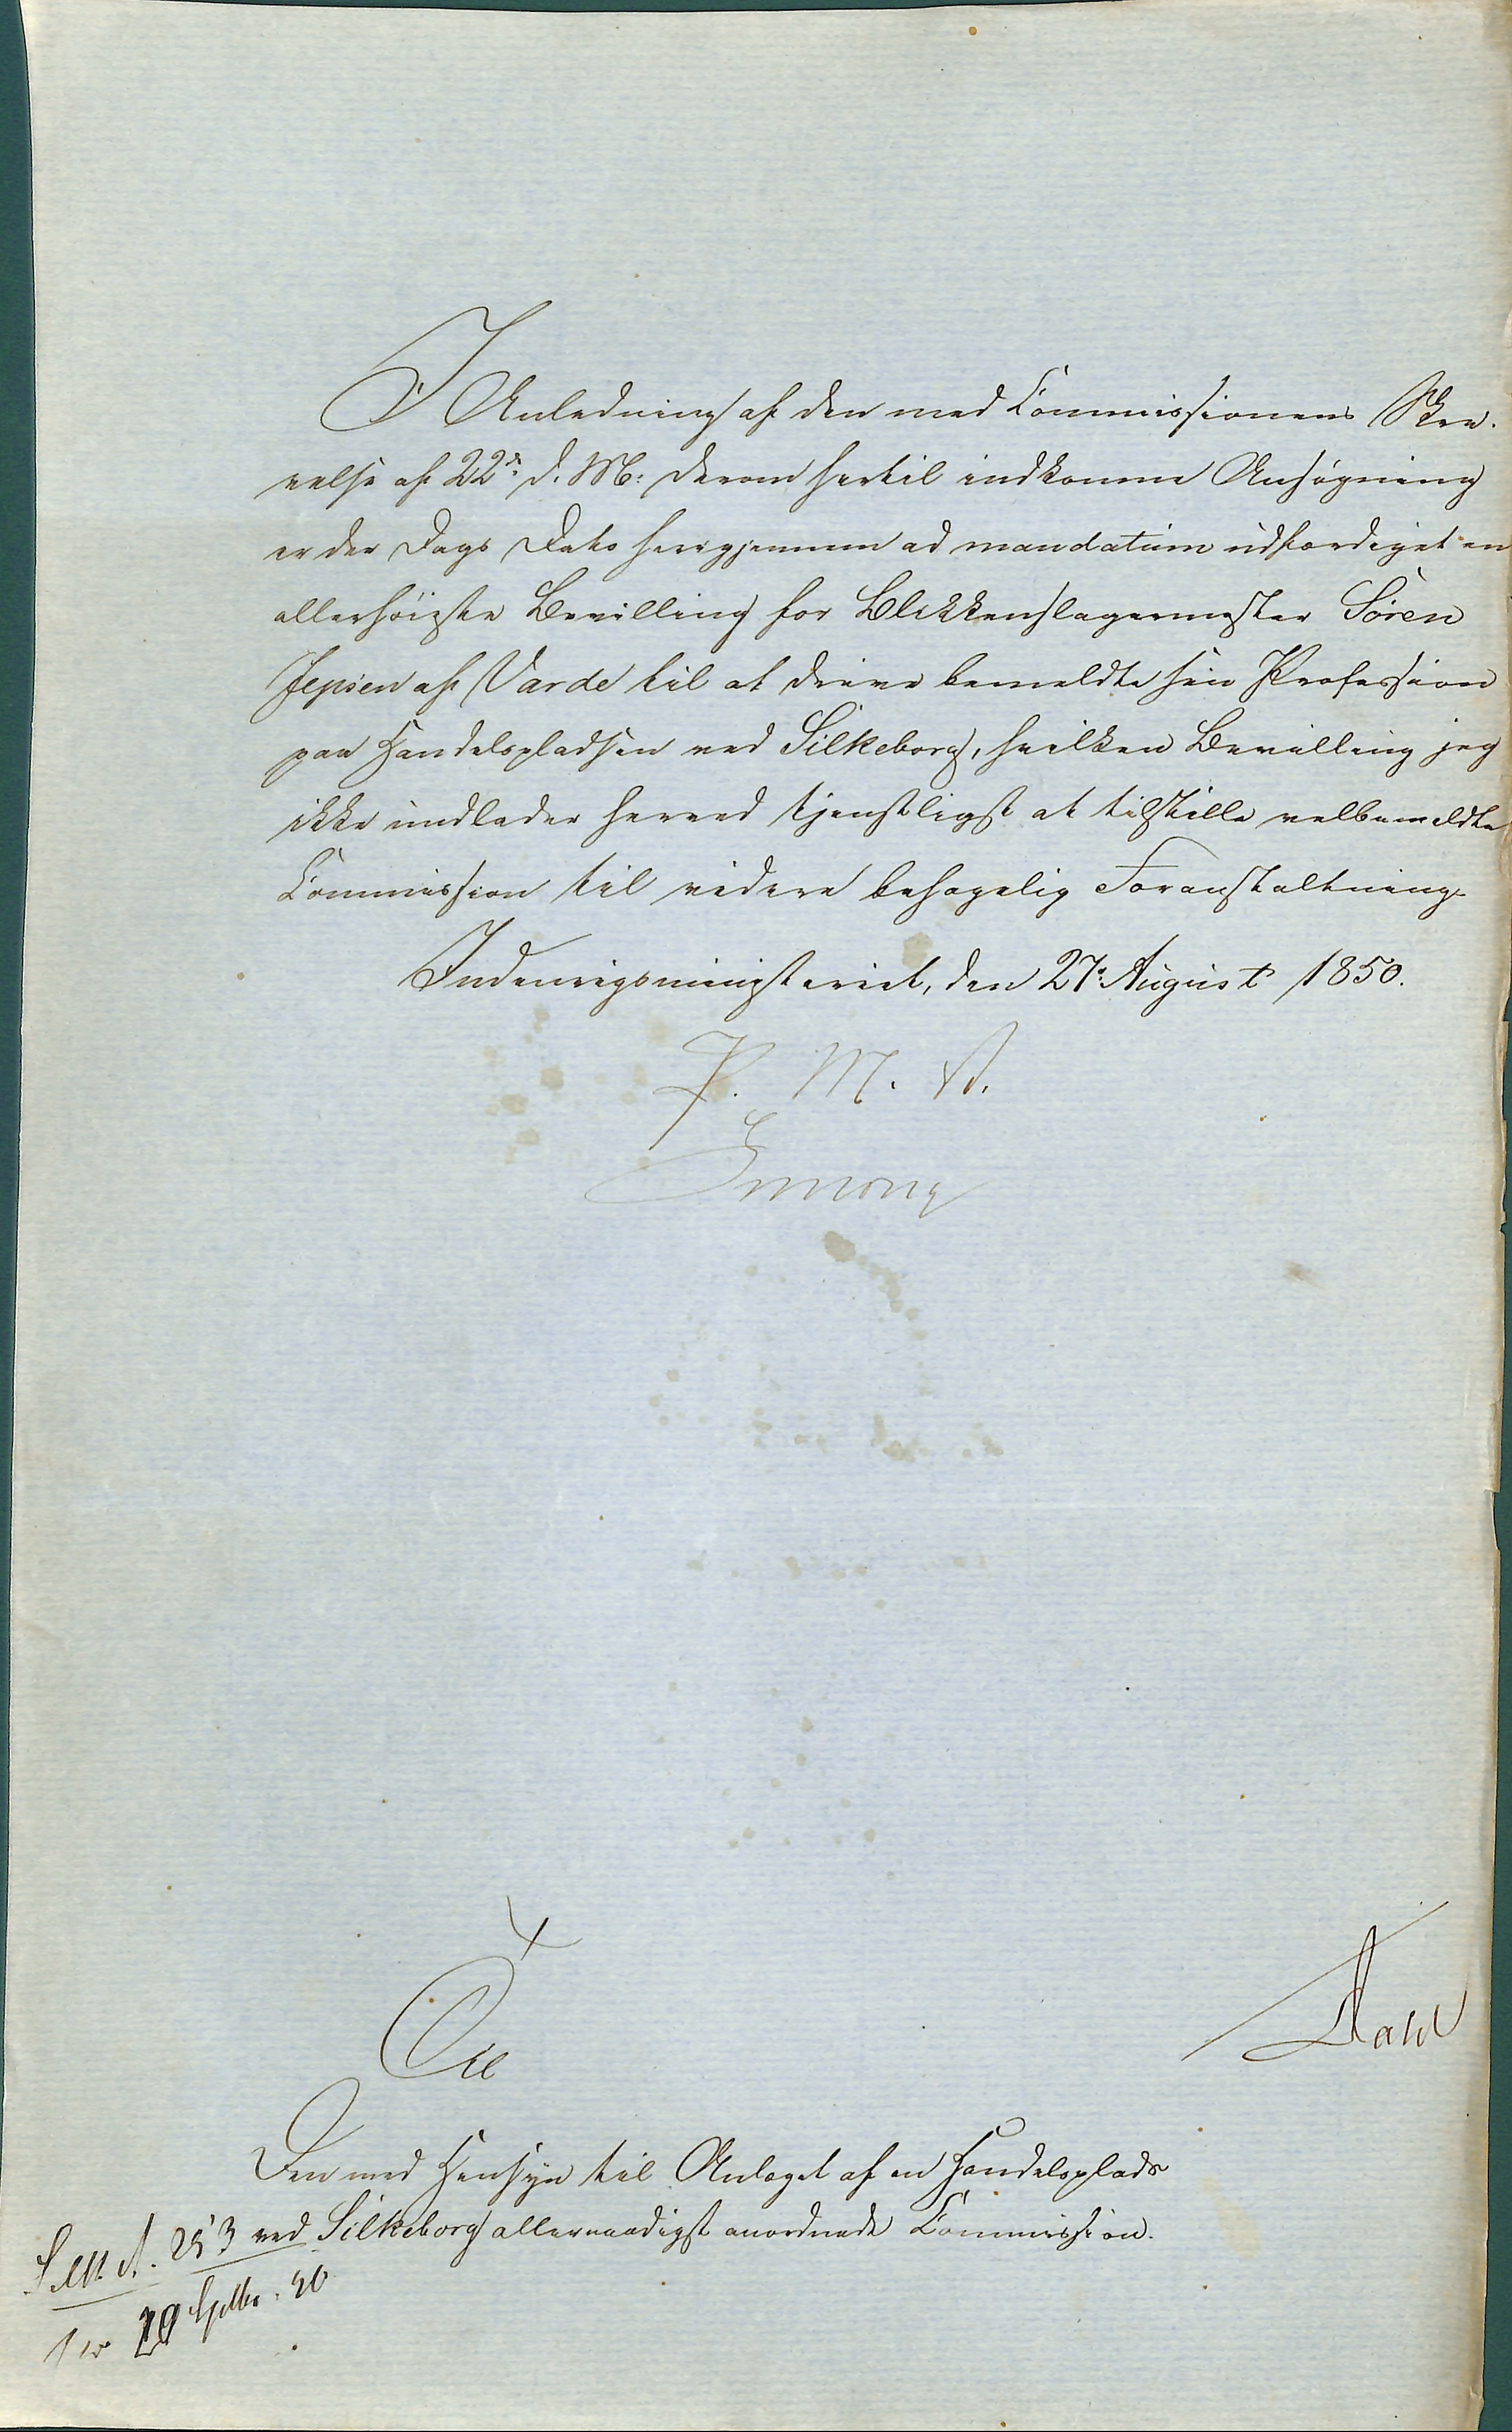 I Anledning af den med Commissionens Skri-
velse af 22d. d. M: derom hertil indkomne Ansøgning
er der Dags Dato herigjennem ad mandatum udfærdiget en
allerhøieste Bevilling for Blikkenslagermester Søren
Jepsen af Varde til at drive bemeldte sin Profession
paa Handelspladsen ved Silkeborg, hvilken Bevilling jeg
ikke undlader herved tjenstligst at tilstille velbemeldte
Commission til videre behagelig Foranstaltning.
Indenrigsministeriet, den 27. August 1850.
P. M. V.
Simony
Til
Den med Hensyn til Anlæget af en Handelsplads
ved Silkeborg allernaadigst anordnede Commission.
253